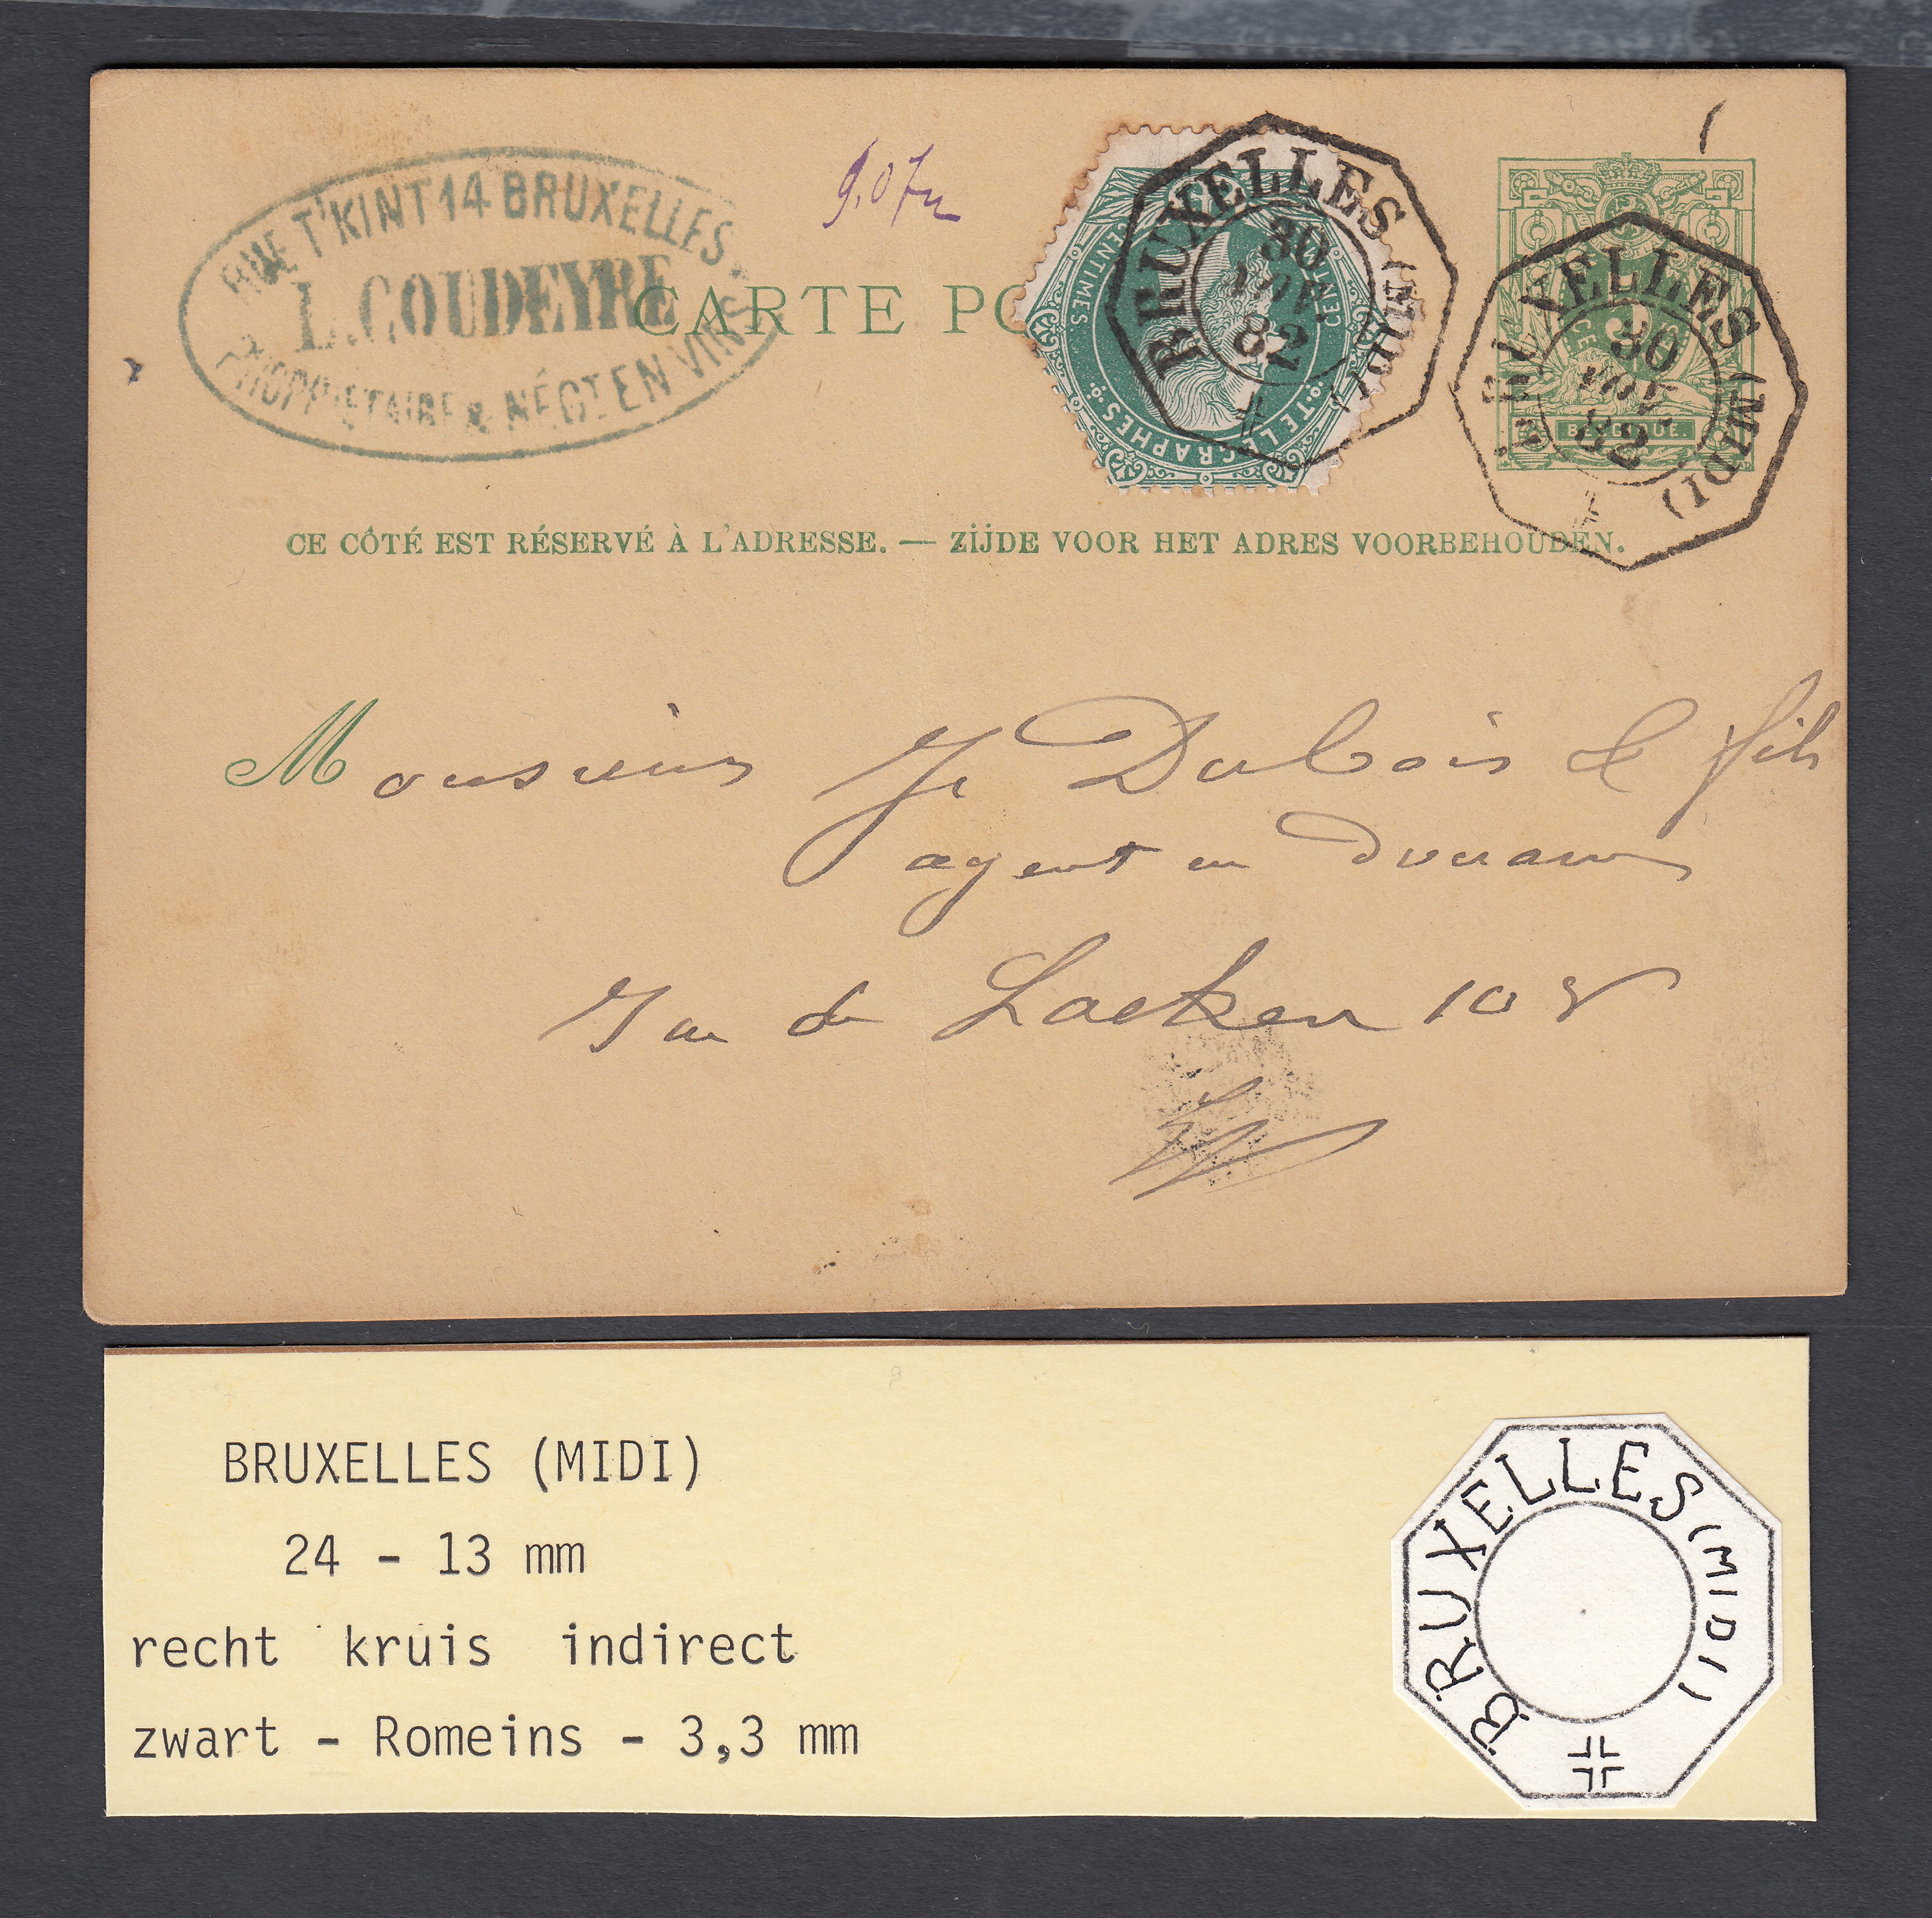 RUE T'KINT 14 BRUXELLES
L. COUDEYRE
PROPRIÉTAIRE & NÉGT EN VINS
CARTE PO
CENTIMES
CENTIMES
TÉLÉGRAPHES
BRUXELLES (MIDI)
30
82
BELGIQUE.
BRUXELLES (MIDI)
30
82
CE CÔTÉ EST RÉSERVÉ À L'ADRESSE. — ZIJDE VOOR HET ADRES VOORBEHOUDEN.
Monsieur Dubois & fils
agent en douane
Rue de Laeken 108
BRUXELLES (MIDI)
24 - 13 mm
recht kruis indirect
zwart - Romeins - 3,3 mm
BRUXELLES (MIDI)